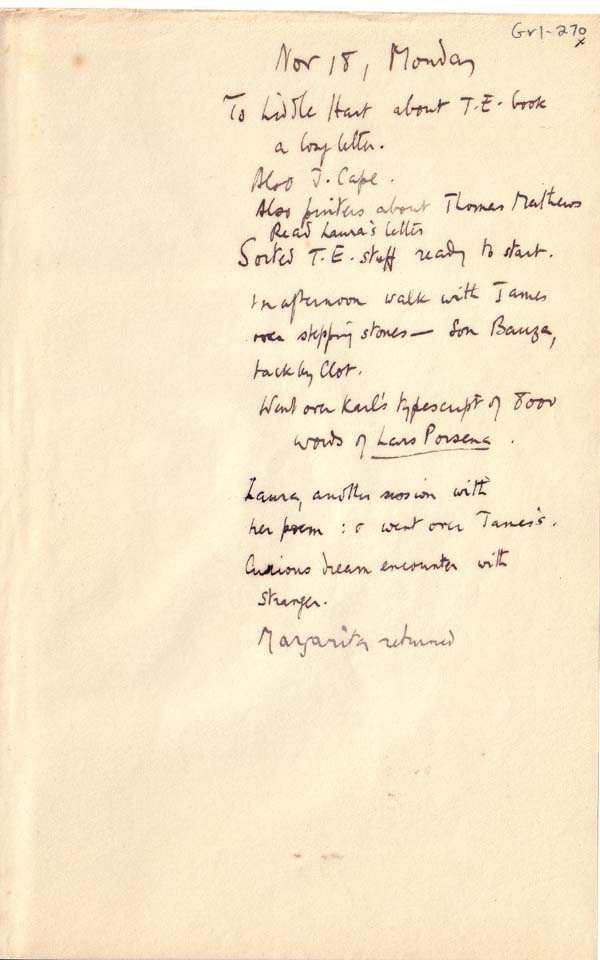 Gr1-270
x
Nov 18, Monday
To Liddle Hart about T.E. book
a long letter.
Also J. Cape.
Also printers about Thomas Mathews
Read Laura's letter
Sorted T.E. stuff ready to start.
In afternoon walk with James
over stepping stones — Son Bauza,
back by Clot.
Went over Karl's typescript of 8000
words of Lars Porsena.
Laura, another session with
her poem: & went over James's.
Curious dream encounter with
stranger.
Margarita returned